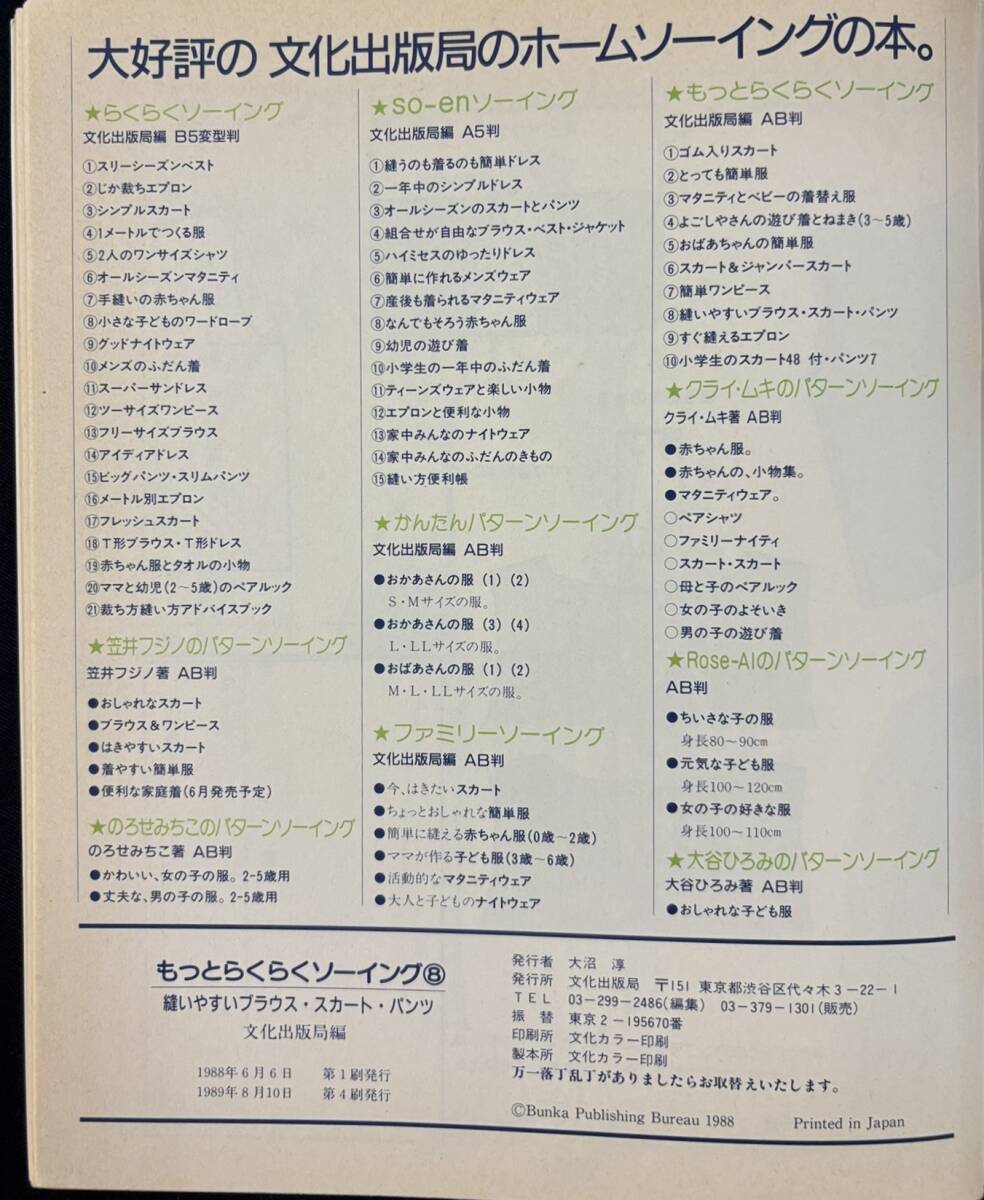 大好評の 文化出版局のホームソーイングの本。
★らくらくソーイング
文化出版局編 B5変型判
①スリーシーズンベスト
②じか裁ちエプロン
③シンプルスカート
④1メートルでつくる服
⑤2人のワンサイズシャツ
⑥オールシーズンマタニティ
⑦手縫いの赤ちゃん服
⑧小さな子どものワードローブ
⑨グッドナイトウェア
⑩メンズのふだん着
⑪スーパーサンドレス
⑫ツーサイズワンピース
⑬フリーサイズブラウス
⑭アイディアドレス
⑮ビッグパンツ・スリムパンツ
⑯メートル別エプロン
⑰フレッシュスカート
⑱T形ブラウス・T形ドレス
⑲赤ちゃん服とタオルの小物
⑳ママと幼児(2〜5歳)のペアルック
㉑裁ち方縫い方アドバイスブック
★笠井フジノのパターンソーイング
笠井フジノ著 AB判
●おしゃれなスカート
●ブラウス&ワンピース
●はきやすいスカート
●着やすい簡単服
●便利な家庭着(6月発売予定)
★のろせみちこのパターンソーイング
のろせみちこ著 AB判
●かわいい、女の子の服。2-5歳用
●丈夫な、男の子の服。2-5歳用
★so-enソーイング
文化出版局編 A5判
①縫うのも着るのも簡単ドレス
②一年中のシンプルドレス
③オールシーズンのスカートとパンツ
④組合せが自由なブラウス・ベスト・ジャケット
⑤ハイミセスのゆったりドレス
⑥簡単に作れるメンズウェア
⑦産後も着られるマタニティウェア
⑧なんでもそろう赤ちゃん服
⑨幼児の遊び着
⑩小学生の一年中のふだん着
⑪ティーンズウェアと楽しい小物
⑫エプロンと便利な小物
⑬家中みんなのナイトウェア
⑭家中みんなのふだんのきもの
⑮縫い方便利帳
★かんたんパターンソーイング
文化出版局編 AB判
●おかあさんの服 (1) (2)
S・Mサイズの服。
●おかあさんの服 (3) (4)
L・LLサイズの服。
●おばあさんの服 (1) (2)
M・L・LLサイズの服。
★ファミリーソーイング
文化出版局編 AB判
●今、はきたいスカート
●ちょっとおしゃれな簡単服
●簡単に縫える赤ちゃん服(0歳〜2歳)
●ママが作る子ども服(3歳〜6歳)
●活動的なマタニティウェア
●大人と子どものナイトウェア
★もっとらくらくソーイング
文化出版局編 AB判
①ゴム入りスカート
②とっても簡単服
③マタニティとベビーの着替え服
④よごしやさんの遊び着とねまき(3〜5歳)
⑤おばあちゃんの簡単服
⑥スカート&ジャンパースカート
⑦簡単ワンピース
⑧縫いやすいブラウス・スカート・パンツ
⑨すぐ縫えるエプロン
⑩小学生のスカート48 付・パンツ7
★クライ・ムキのパターンソーイング
クライ・ムキ著 AB判
●赤ちゃん服。
●赤ちゃんの、小物集。
●マタニティウェア。
○ペアシャツ
○ファミリーナイティ
○スカート・スカート
○母と子のペアルック
○女の子のよそいき
○男の子の遊び着
★Rose-Alのパターンソーイング
AB判
●ちいさな子の服
身長80〜90cm
●元気な子ども服
身長100〜120cm
●女の子の好きな服
身長100〜110cm
★大谷ひろみのパターンソーイング
大谷ひろみ著 AB判
●おしゃれな子ども服
もっとらくらくソーイング⑧
縫いやすいブラウス・スカート・パンツ
文化出版局編
1988年6月6日 第1刷発行
1989年8月10日 第4刷発行
発行者 大沼 淳
発行所 文化出版局 〒151 東京都渋谷区代々木3-22-1
TEL 03-299-2486(編集) 03-379-1301(販売)
振替 東京2-195670番
印刷所 文化カラー印刷
製本所 文化カラー印刷
万一落丁乱丁がありましたらお取替えいたします。
©Bunka Publishing Bureau 1988 Printed in Japan